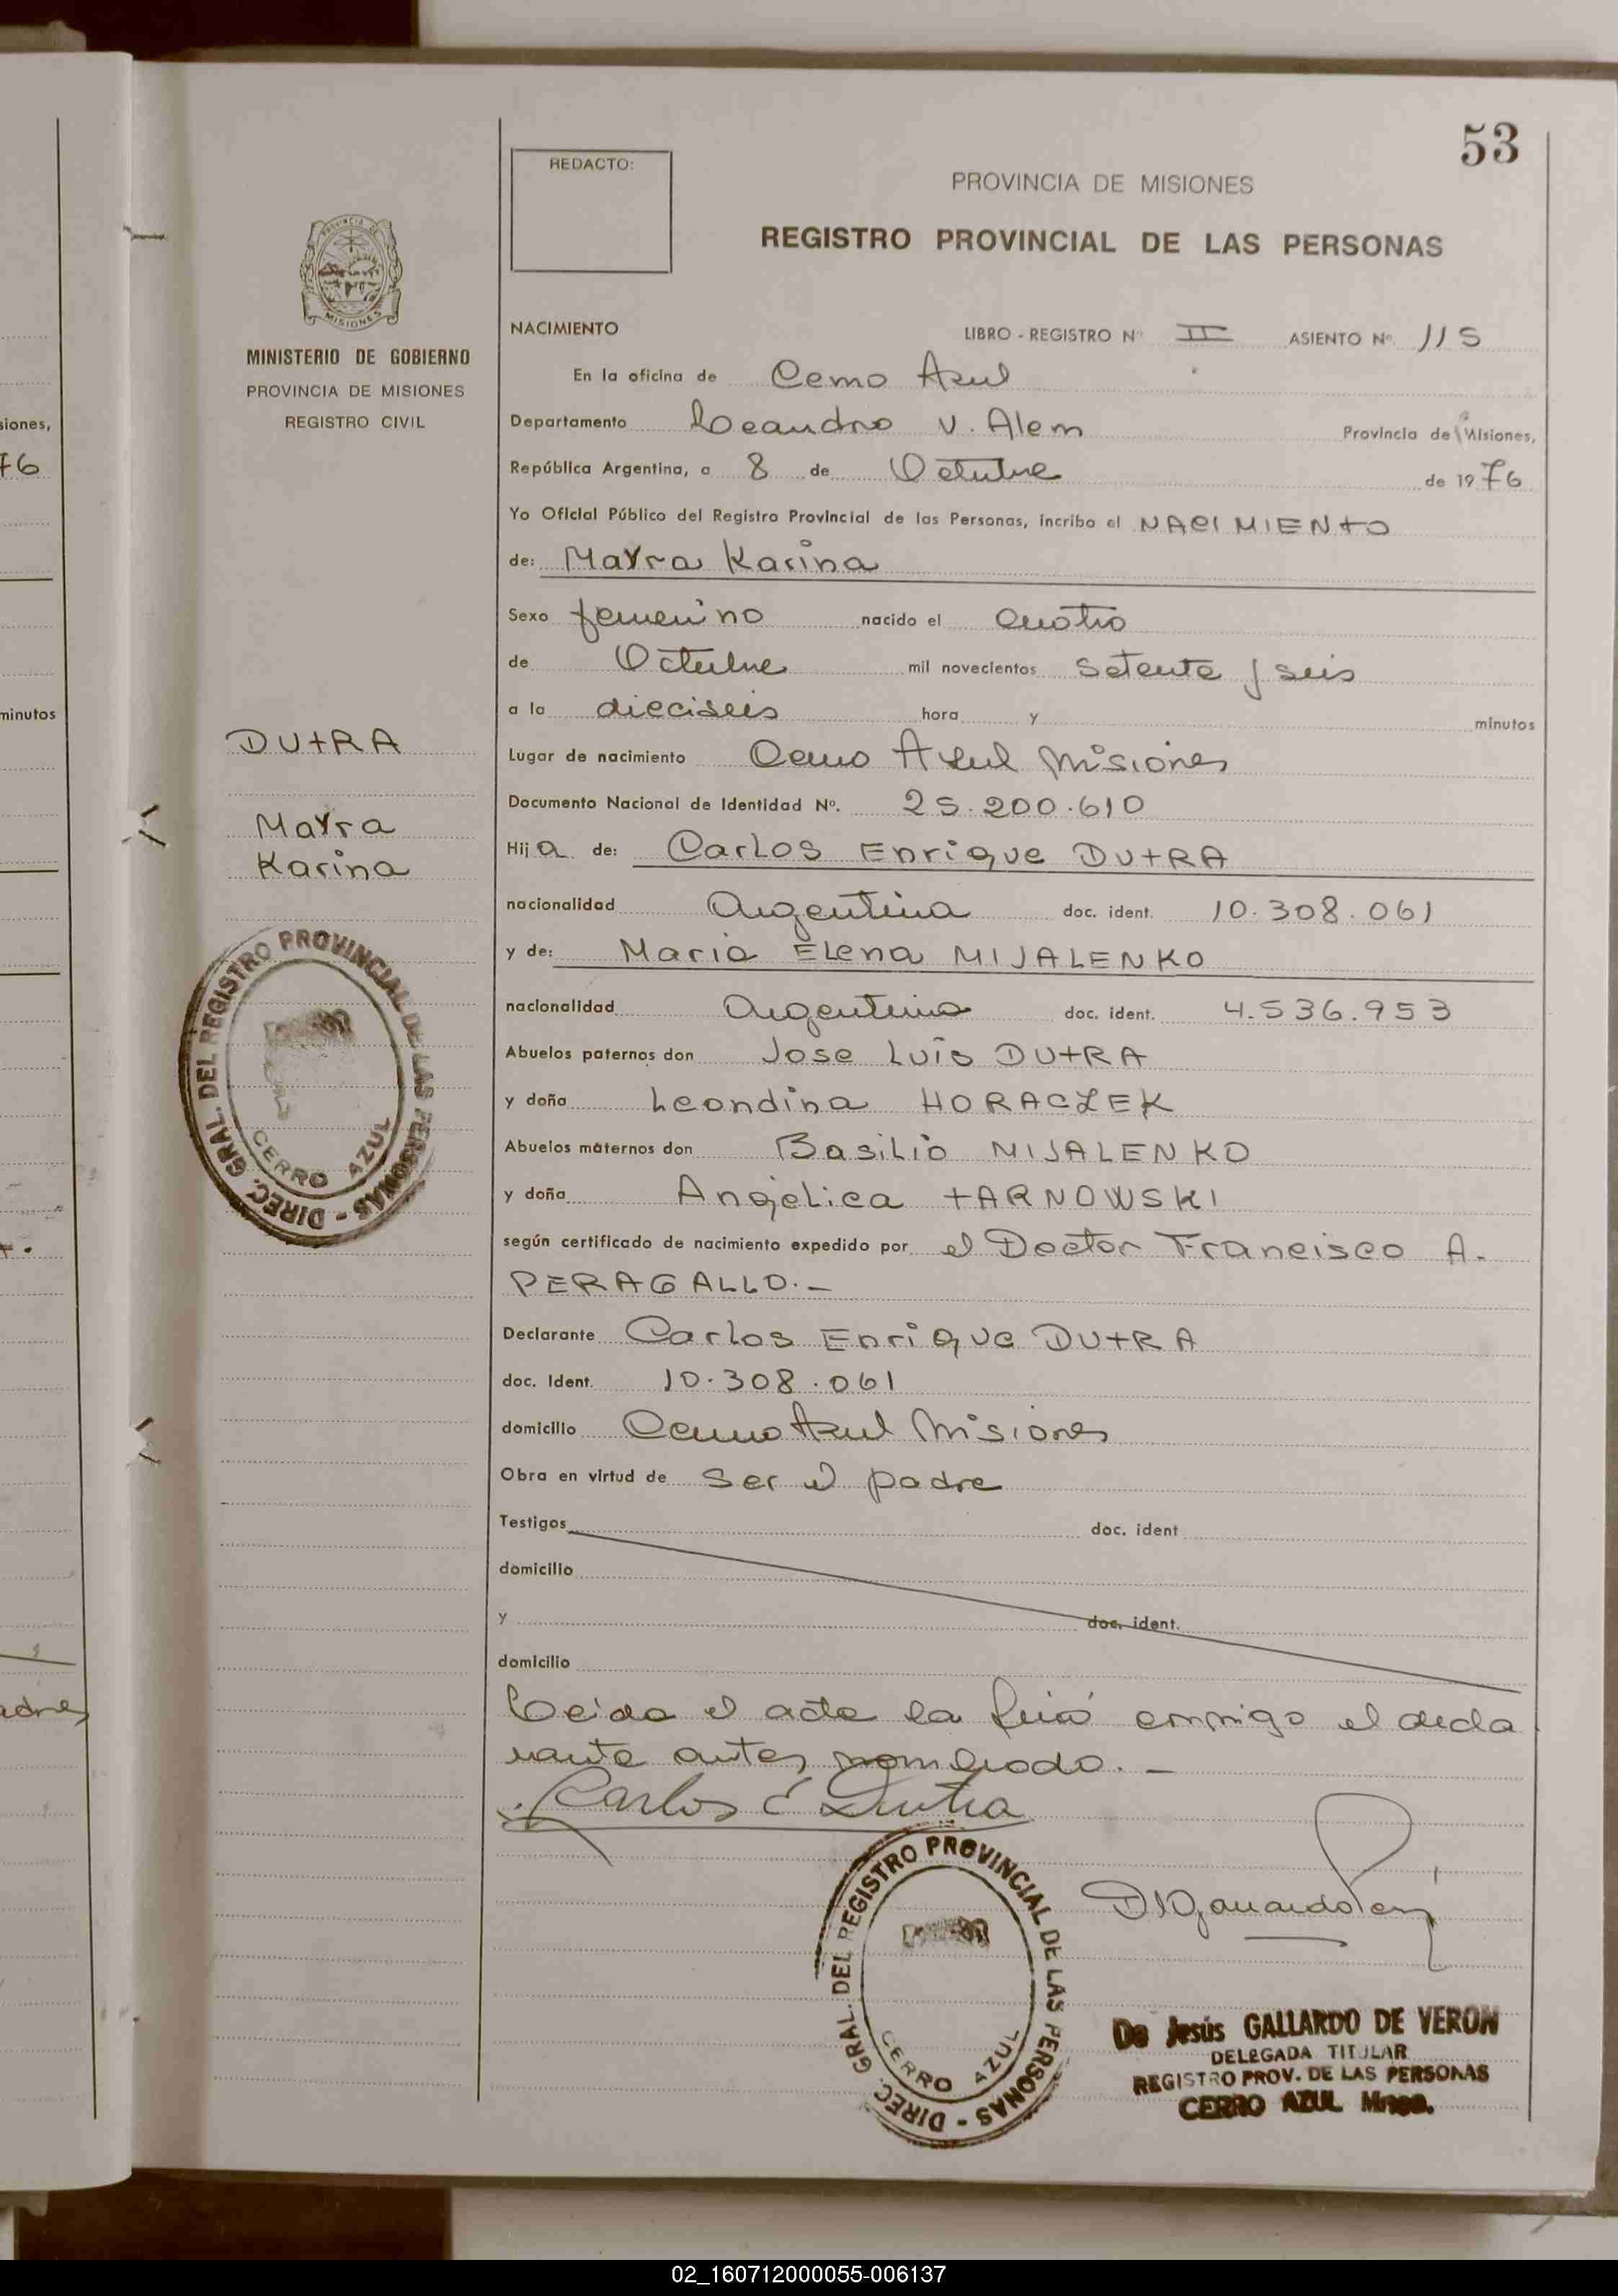 53
REDACTO:
PROVINCIA DE MISIONES
REGISTRO PROVINCIAL DE LAS PERSONAS
PROVINCIA DE
MISIONES
MINISTERIO DE GOBIERNO
PROVINCIA DE MISIONES
REGISTRO CIVIL
NACIMIENTO LIBRO - REGISTRO Nº II ASIENTO Nº 115
En la oficina de Cerro Azul
Departamento Leandro N. Alem Provincia de Misiones,
República Argentina, a 8 de Octubre de 1976
Yo Oficial Público del Registro Provincial de las Personas, incribo el NACIMIENTO
de: Mayra Karina
Sexo femenino nacido el cuatro
de Octubre mil novecientos setenta y seis
a la dieciseis hora y minutos
Lugar de nacimiento Cerro Azul Misiones
Documento Nacional de Identidad Nº. 25.200.610
Hija de: Carlos Enrique DUTRA
nacionalidad Argentina doc. ident. 10.308.061
y de: Maria Elena MIJALENKO
nacionalidad Argentina doc. ident. 4.536.953
Abuelos paternos don Jose Luis DUTRA
y doña Leondina HORACZEK
Abuelos maternos don Basilio MIJALENKO
y doña Angelica TARNOWSKI
según certificado de nacimiento expedido por el Doctor Francisco A.
PERAGALLO.-
Declarante Carlos Enrique DUTRA
doc. Ident. 10.308.061
domicilio Cerro Azul Misiones
Obra en virtud de ser el padre
Testigos doc. ident
domicilio
y doc. ident.
domicilio
Leida el acta la firmó conmigo el decla
rante antes nombrado.-
Carlos E Dutra
DUTRA
Mayra
Karina
DIREC. GRAL. DEL REGISTRO PROVINCIAL DE LAS PERSONAS -
CERRO AZUL
DIREC. GRAL. DEL REGISTRO PROVINCIAL DE LAS PERSONAS -
CERRO AZUL
De Jesús GALLARDO DE VERON
DELEGADA TITULAR
REGISTRO PROV. DE LAS PERSONAS
CERRO AZUL Mnes.
siones,
76
minutos
adre
02_160712000055-006137